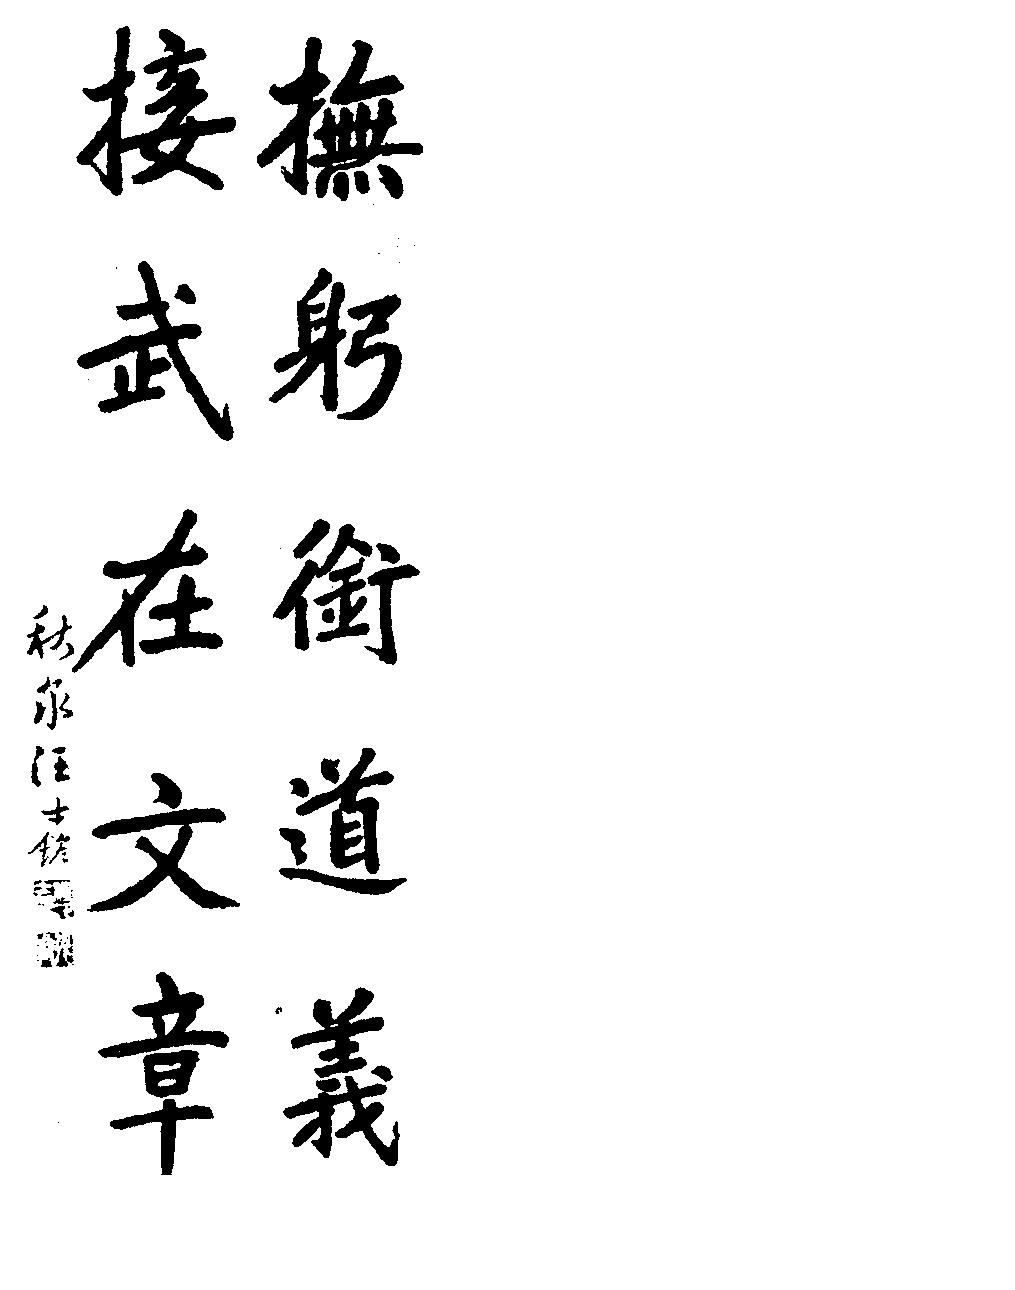 撫躬銜道義
接武在文章
秋泉汪士鋡